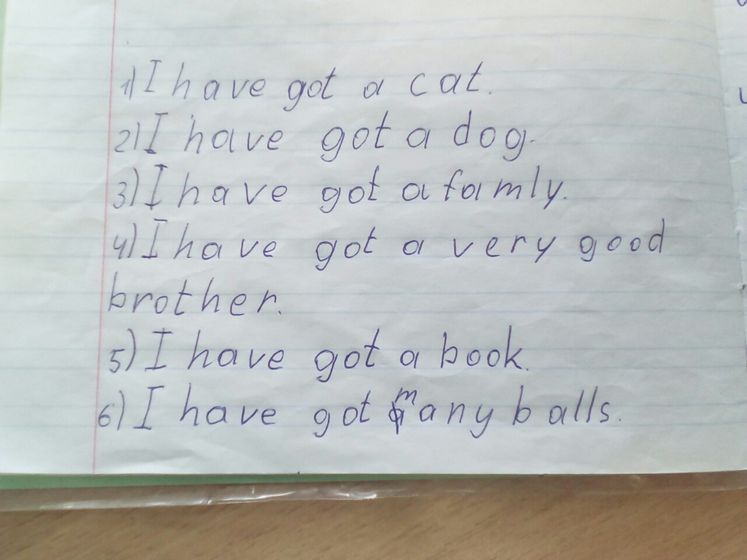 1) I have got a cat.
2) I have got a dog.
3) I have got a famly.
4) I have got a very good
brother.
5) I have got a book.
6) I have got many balls.